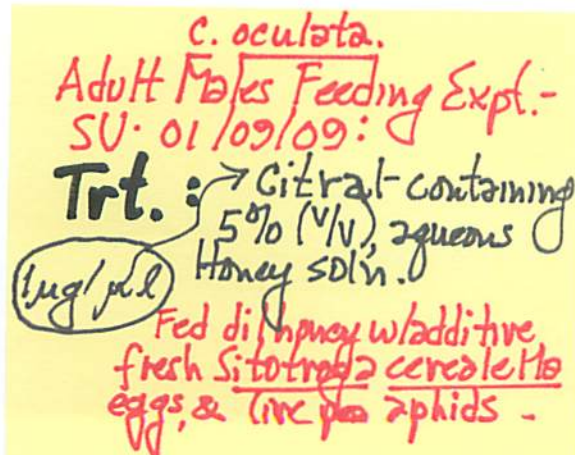 C. oculata.
Adult Males Feeding Expt.-
SU. 01/09/09:
Trt. : → Citral-containing
5% (v/v), aqueous
Honey sol'n.
1µg/µl
Fed dil honey w/additive
fresh Sitotroga cerealella
eggs, & live aphids -